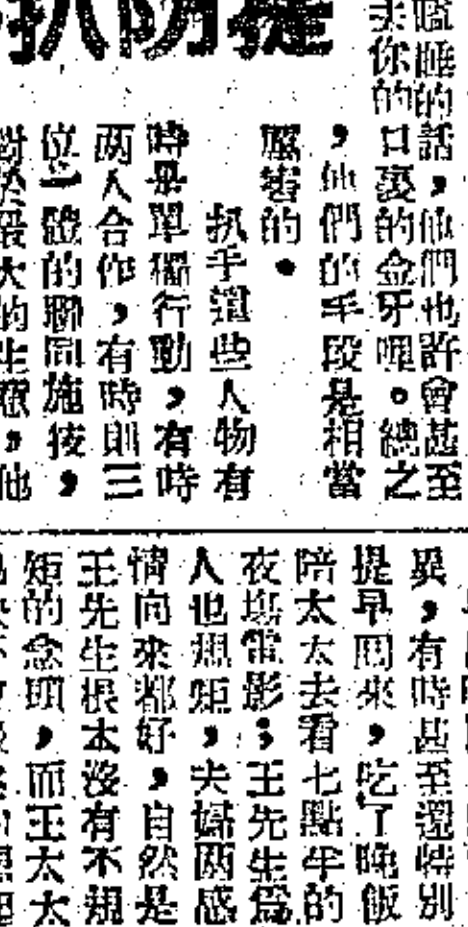 提防扒
瞌睡的話，他們也許會甚至
去你的口裏的金牙呢。總之
，他們的手段是相當
厲害的。
扒手這些人物有
時是單獨行動，有時
两人合作，有時則三
位一體的聯同施技，
對於最大的生意，他
異，有時甚至還特別
提早囘來，吃了晚飯
陪太太去看七點半的
夜塲電影；王先生爲
人也規矩，夫婦两感
情向來都好，自然是
王先生根本沒有不規
矩的念頭，而王太太